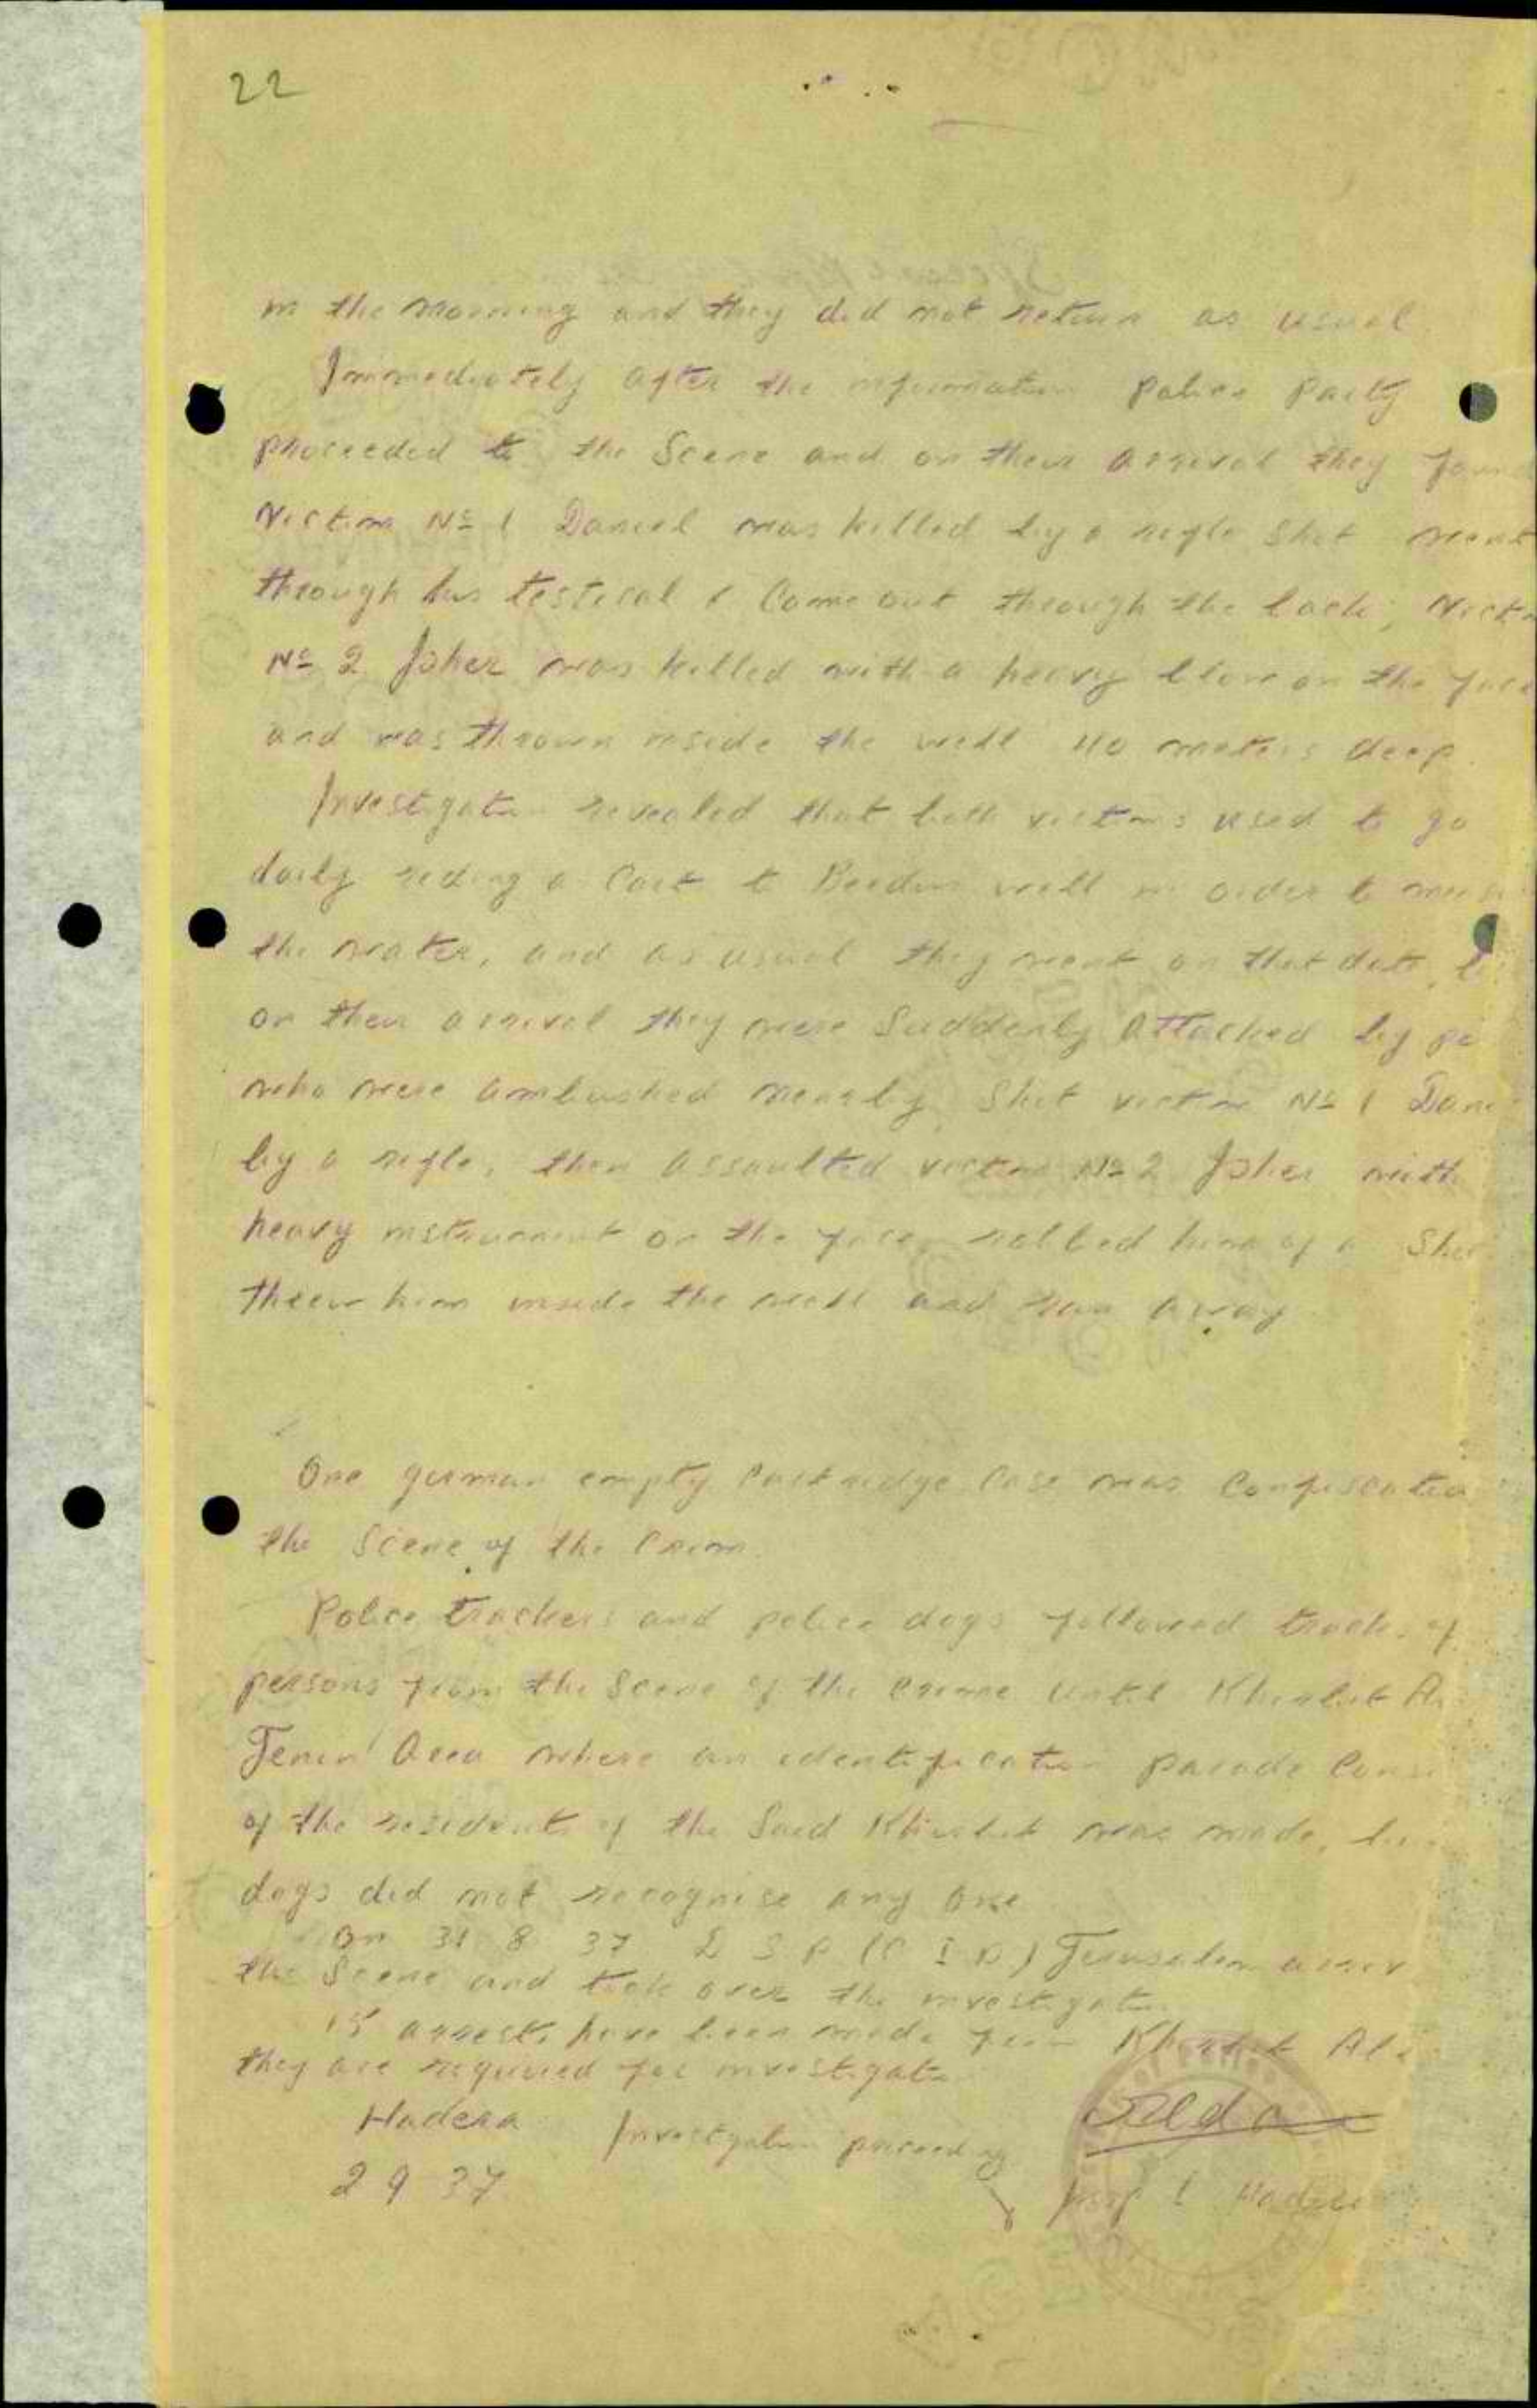 22
in the morning and they did not return as usual
Immediately after the information Police Party
proceeded to the Scene and on their arrival they foun
Victim No 1 Daniel was killed by a rifle shot went
through his testical & Came out through the back, Victi
No 2 Joher was killed with a heavy blow on the face
and was thrown inside the well 40 meters deep.
Investigation revealed that both victims used to go
daily riding a Cart to well in order to
the water, and as usual they went on that date,
on their arrival they were Suddenly attacked by pe
who were ambushed nearby, Shot victim No 1 Dani
by a rifle, then assaulted victim No 2 Joher with
heavy instrument on the face, robbed him of a
threw him inside the well and ran away.
One german empty Cartridge Case was Confiscated
the Scene of the Crime.
Police trackers and police dogs followed tracks of
persons from the Scene of the crime until Khirbet
Jenin Area where an identification parade Consi
of the residents of the Said Khirbet was made, bu
dogs did not recognise any one.
On 31 8 37 D S P (C I D) Jerusalem arriv
the Scene and took over the investigation
15 arrests have been made from Khirbet
they are required for investigation
Hadera Investigation proceeding
2 9 37
Insp I Hadera